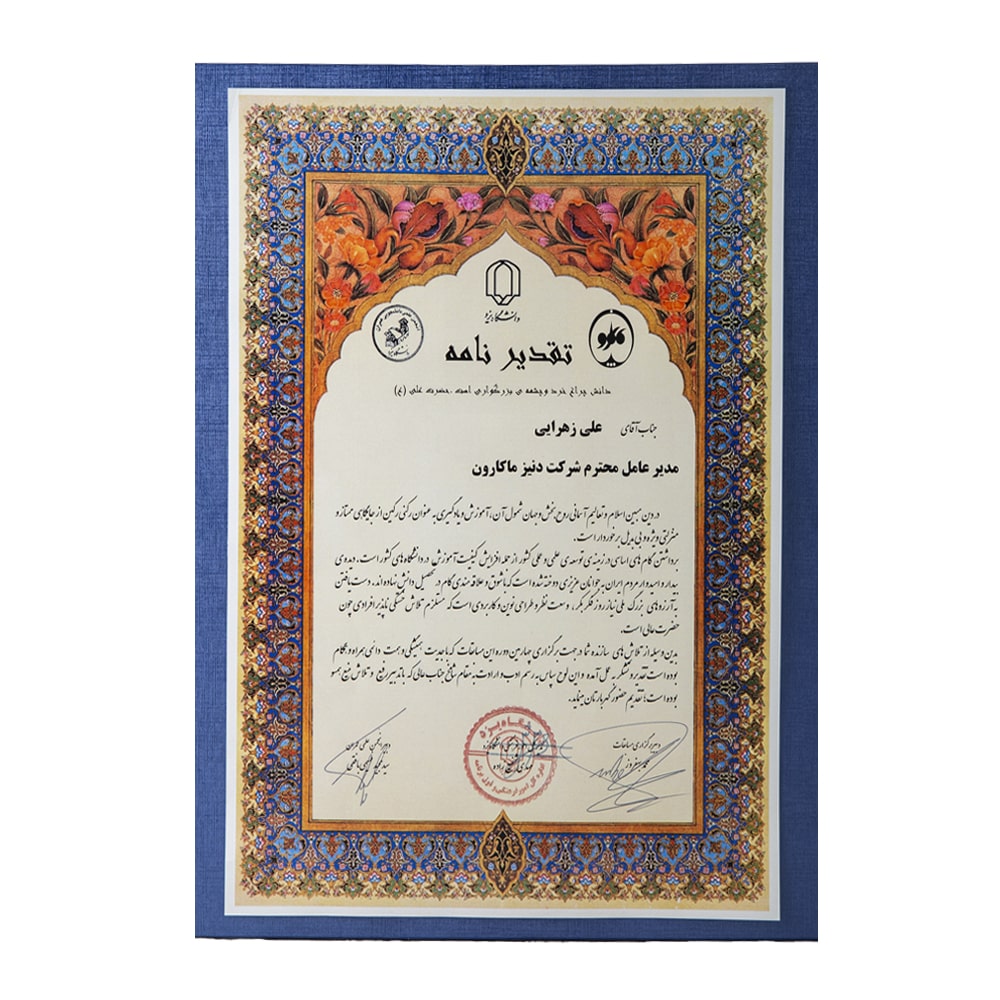 دانشگاه یزد
تقدیر نامه
دانش چراغ خرد و چشمه ی بزرگواری است .حضرت علی (ع)
جناب آقای علی زهرایی
مدیر عامل محترم شرکت دنیز ماکارون
در دین مبین اسلام و تعالیم آسمانی روح بخش و جهان شمول آن، آموزش و یادگیری به عنوان رکنی رکین از جایگاهی ممتاز و
منزلتی ویژه و بی بدیل برخوردار است.
برداشتن گام های اساسی در زمینه ی توسعه ی علمی و عملی کشور از جمله افزایش کیفیت آموزش در دانشگاه های کشور است. دیده ی
بیدار و امیدوار مردم ایران به جوانان عزیزی دوخته شده است که با شوق و علاقه مندی گام در تحصیل دانش نهاده اند. دست یافتن
به آرزوهای بزرگ ملی نیازمند فکر بکر، وسعت نظر و طراحی نوین و کاربردی است که مستلزم تلاش خستگی ناپذیر افرادی چون
حضرت عالی است.
بدین وسیله از تلاش های سازنده شما در جهت برگزاری چهارمین دوره این مسابقات که با جدیت همیشگی و همت دائمی همراه و همگام
بوده است تقدیر و تشکر به عمل آمده و این لوح سپاس به رسم ادب و ارادت به مقام شامخ جناب عالی که با تدبیر رفیع و تلاش منیع همسو
بوده است؛ تقدیم حضور گهربارتان می نماید.
دبیر برگزاری مسابقات
دبیر انجمن علمی عمران